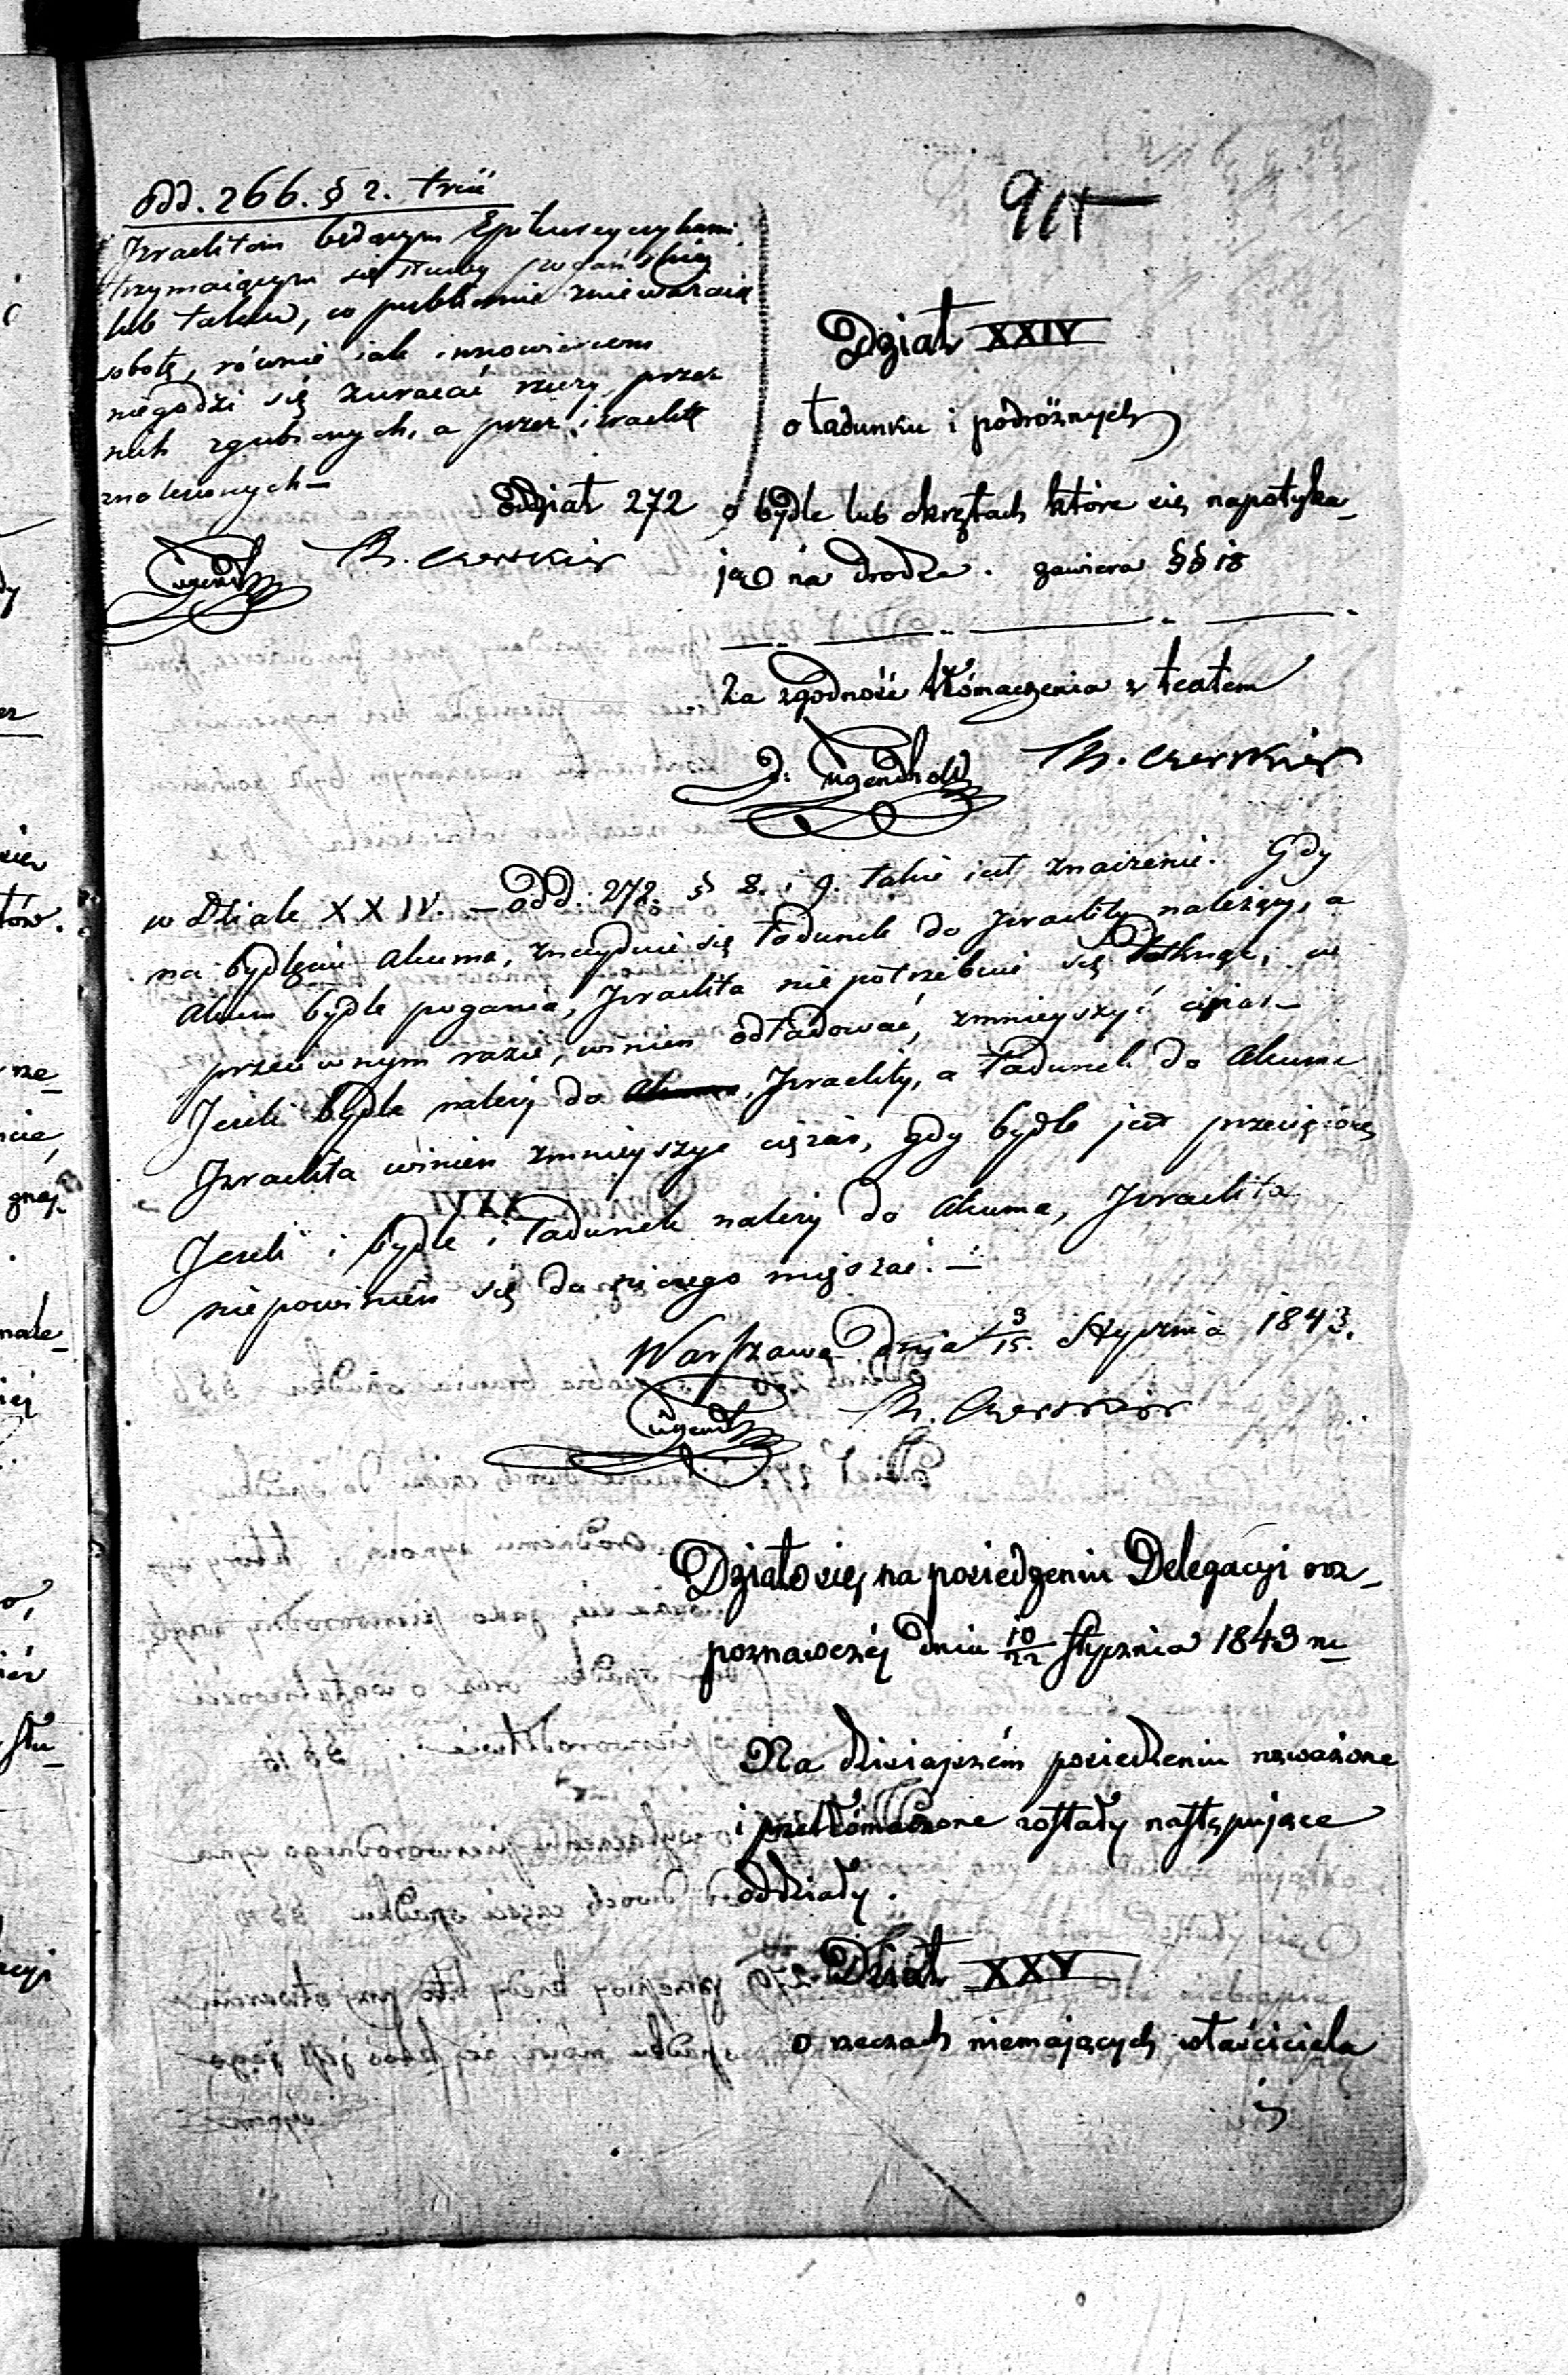 Odd. 266. § 2. treść
Izraelitom będącym Epikurejczykami,
trzymającym się służby pogańskiej
lub takim, co publicznie znieważaią
sobotę, równie iak innowiercom
niegodzi się zwracać rzeczy przez
nich zgubionych, a przez izraelitę
znalezionych —
Jugend M. Czerskier
Dział XXIV
o ładunku i podróżnych
Oddział 272 o bydle lub okrętach które się napotyka-
ją na drodze. zawiera §§ 18
Za zgodność tłómaczenia z textem
J: Tugendhold M. Czerskier
w Dziale XXIV. — Odd. 272. § 8. i 9. takie iest znaczenie. Gdy
na bydlęciu Akuma, znayduie się ładunek do Izraelity należący, a
Akum bydle pogania, Izraelita niepotrzebuie się dotknąć, w
przeciwnym razie, winien odładować, zmnieyszyć ciężar —
Jeżeli bydle należy do Izraelity, a ładunek do Akuma
Izraelita winien zmnieyszyć ciężar, gdy bydle jest przeciążone
Jeżeli i bydle i ładunek należy do Akuma, Izraelita
niepowinien się do niczego mięszać. —
Warszawa dnia 3/15. Stycznia 1843.
Tugend M. Czerskier
Działo się na posiedzeniu Delegacyi roz-
poznawczéj dniu 10/22 stycznia 1843 r.
Na dzisiajszém posiedzeniu rozważone
i przetłómaczone zostały następujące
oddziały.
Dział XXV
o rzeczach niemających właściciela
i